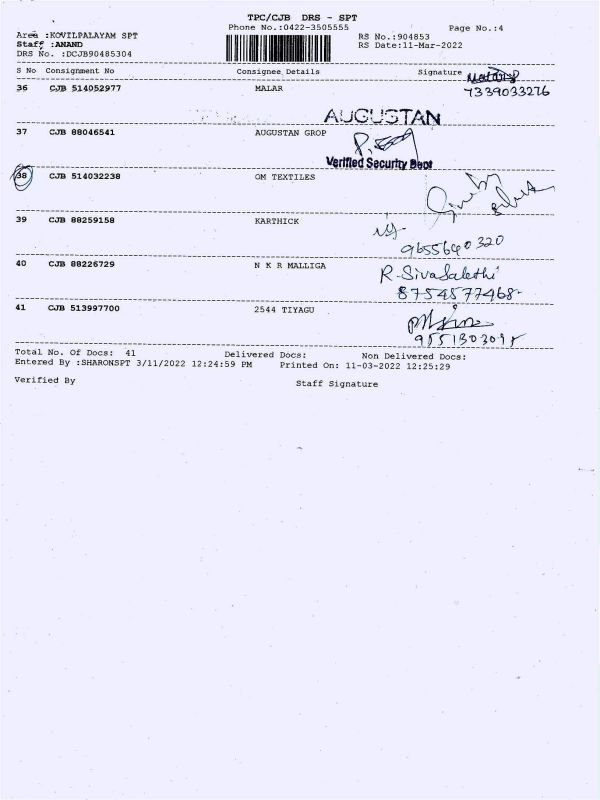 TPC/CJB DRS - SPT
Phone No.:0422-3505555
Page No.:4
Area :KOVILPALAYAM SPT
RS No.:904853
Staff :ANAND
RS Date:11-Mar-2022
DRS No. :DCJB90485304
S No Consignment No Consignee Details Signature
36 CJB 514052977 MALAR
7339033276
AUGUSTAN
37 CJB 88046541 AUGUSTAN GROP
Verified Security Dept
38 CJB 514032238 OM TEXTILES
39 CJB 88259158 KARTHICK
9655640320
40 CJB 88226729 N K R MALLIGA
R. Sivasakthi
8754577468
41 CJB 513997700 2544 TIYAGU
Total No. Of Docs: 41 Delivered Docs: Non Delivered Docs:
Entered By :SHARONSPT 3/11/2022 12:24:59 PM Printed On: 11-03-2022 12:25:29
Verified By Staff Signature